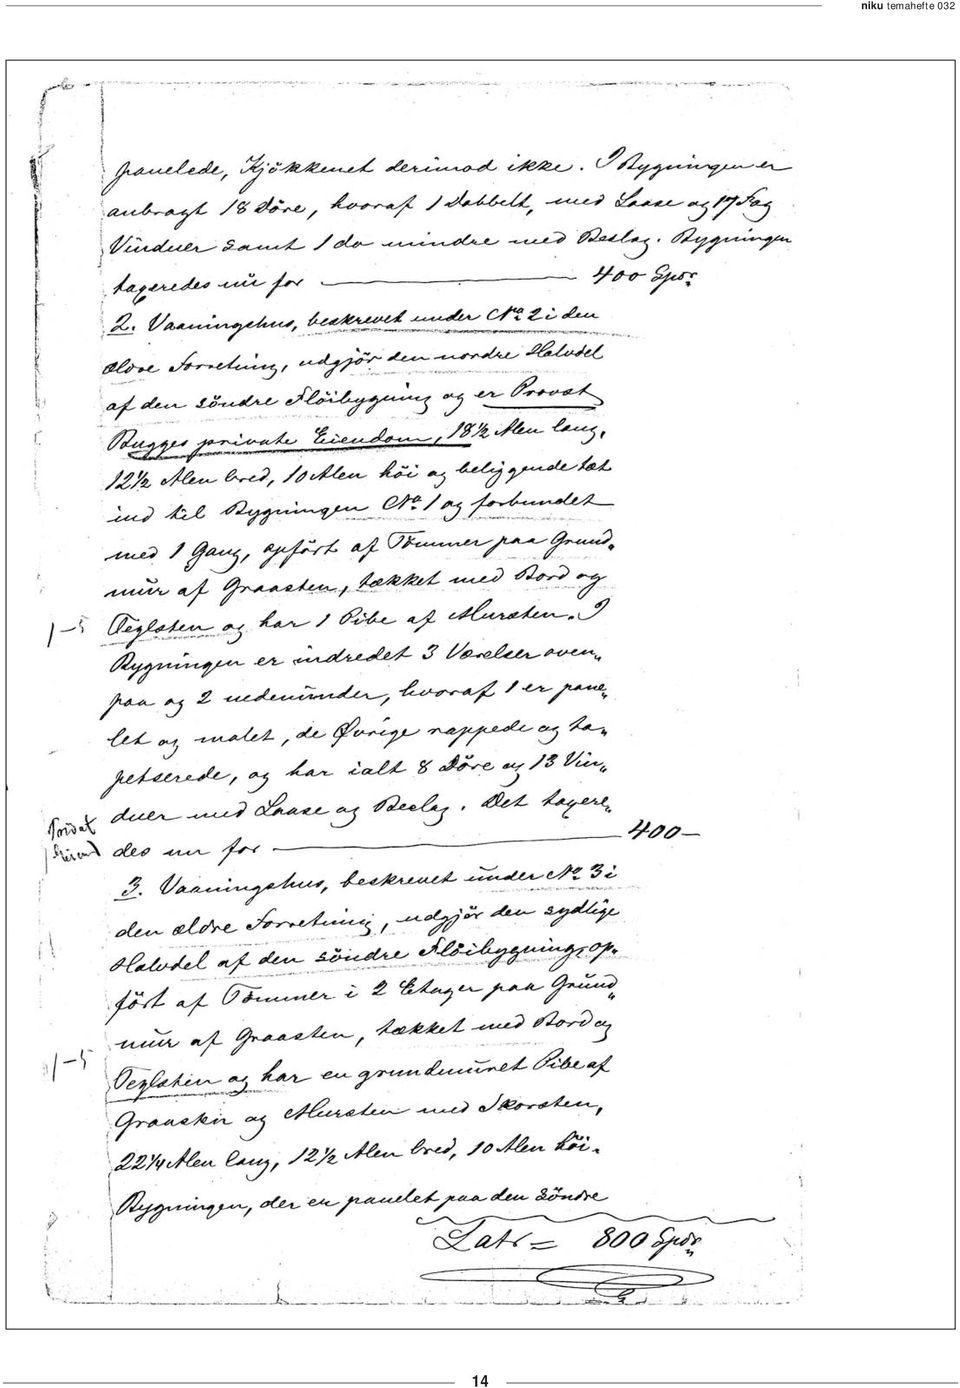 niku temahefte 032
panelede, Kjökkenet derimod ikke. I Bygningen er
anbragt 18 Döre, hvoraf 1 Dobbelt, med Laase og 17 Fag
Vinduer samt 1 do mindre med Beslag. Bygningen
taxeredes nu for — 400 Spdr.
2. Vaaningshus, beskrevet under No. 2 i den
ældre Forretning, udgjör den nordre Halvdel
af den söndre Flöibygning og er Provst
Bugges private Eiendom, 18½ Alen lang,
12½ Alen bred, 10 Alen höi og beliggende tæt
ind til Bygningen No. 1 og forbundet
med 1 Gang, opfört af Tömmer paa Grund„
mur af Graasten, tækket med Bord og
1-5 Teglsten og har 1 Pibe af Mursten. I
Bygningen er indredet 3 Værelser oven„
paa og 2 nedenunder, hvoraf 1 er pane„
let og malet, de Øvrige rappede og ta„
petserede, og har ialt 8 Döre og 13 Vin„
duer med Laase og Beslag. Det taxere„
des nu for — 400—
3. Vaaningshus, beskrevet under No. 3 i
den ældre Forretning, udgjör den sydlige
Halvdel af den söndre Flöibygning, op„
fört af Tömmer i 2 Etager paa Grund„
mur af Graasten, tækket med Bord og
1-5 Teglsten og har en grundmuret Pibe af
Graasten og Mursten med Skorsten,
22¼ Alen lang, 12½ Alen bred, 10 Alen höi.
Bygningen, der er panelet paa den söndre
Latr = 800 Spdr.
14